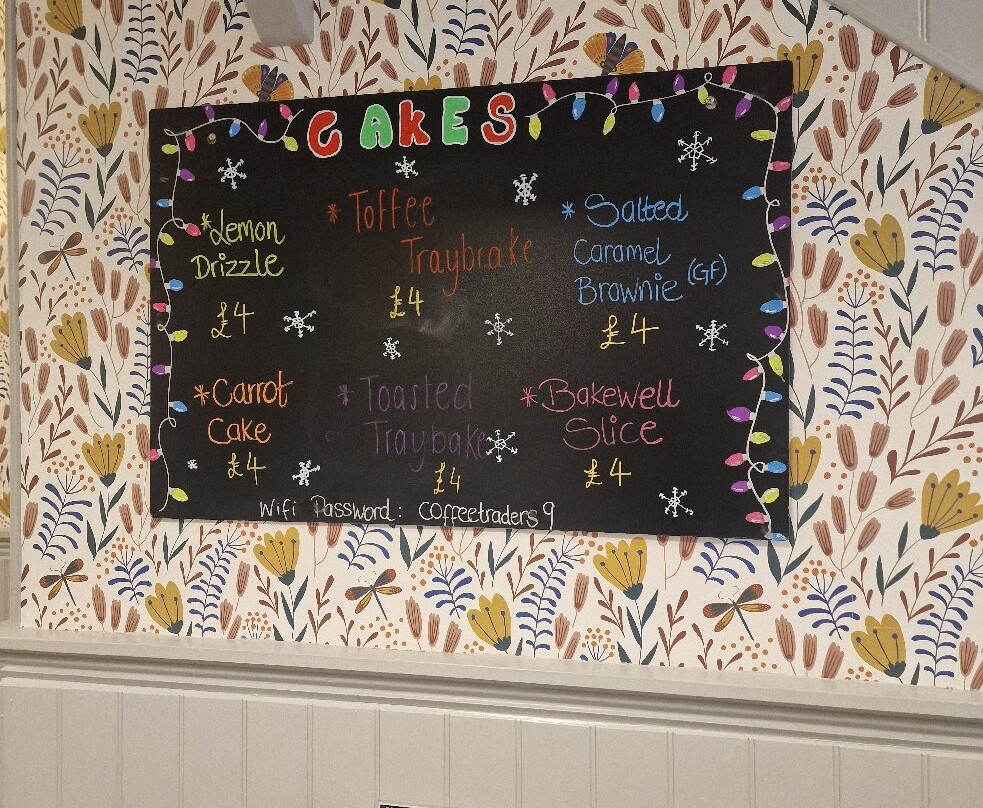 CAKES
*Lemon
Drizzle
£4
*Toffee
Traybrake
£4
*Salted
Caramel
Brownie (GF)
£4
*Carrot
Cake
£4
*Toasted
Traybake
£4
*Bakewell
Slice
£4
Wifi Password: coffeetraders9